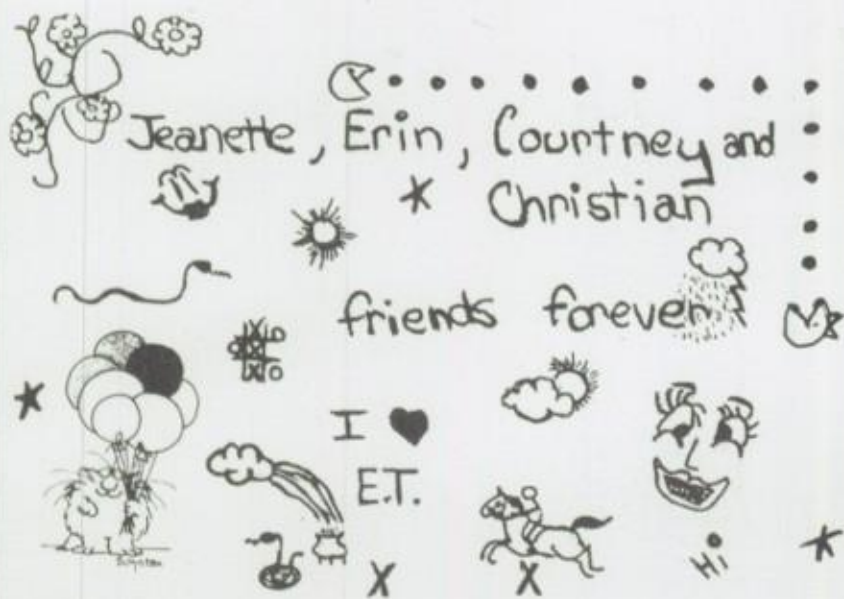 Jeanette, Erin, Courtney and
Christian
friends forever
I ♥
E.T.
Hi
X
X